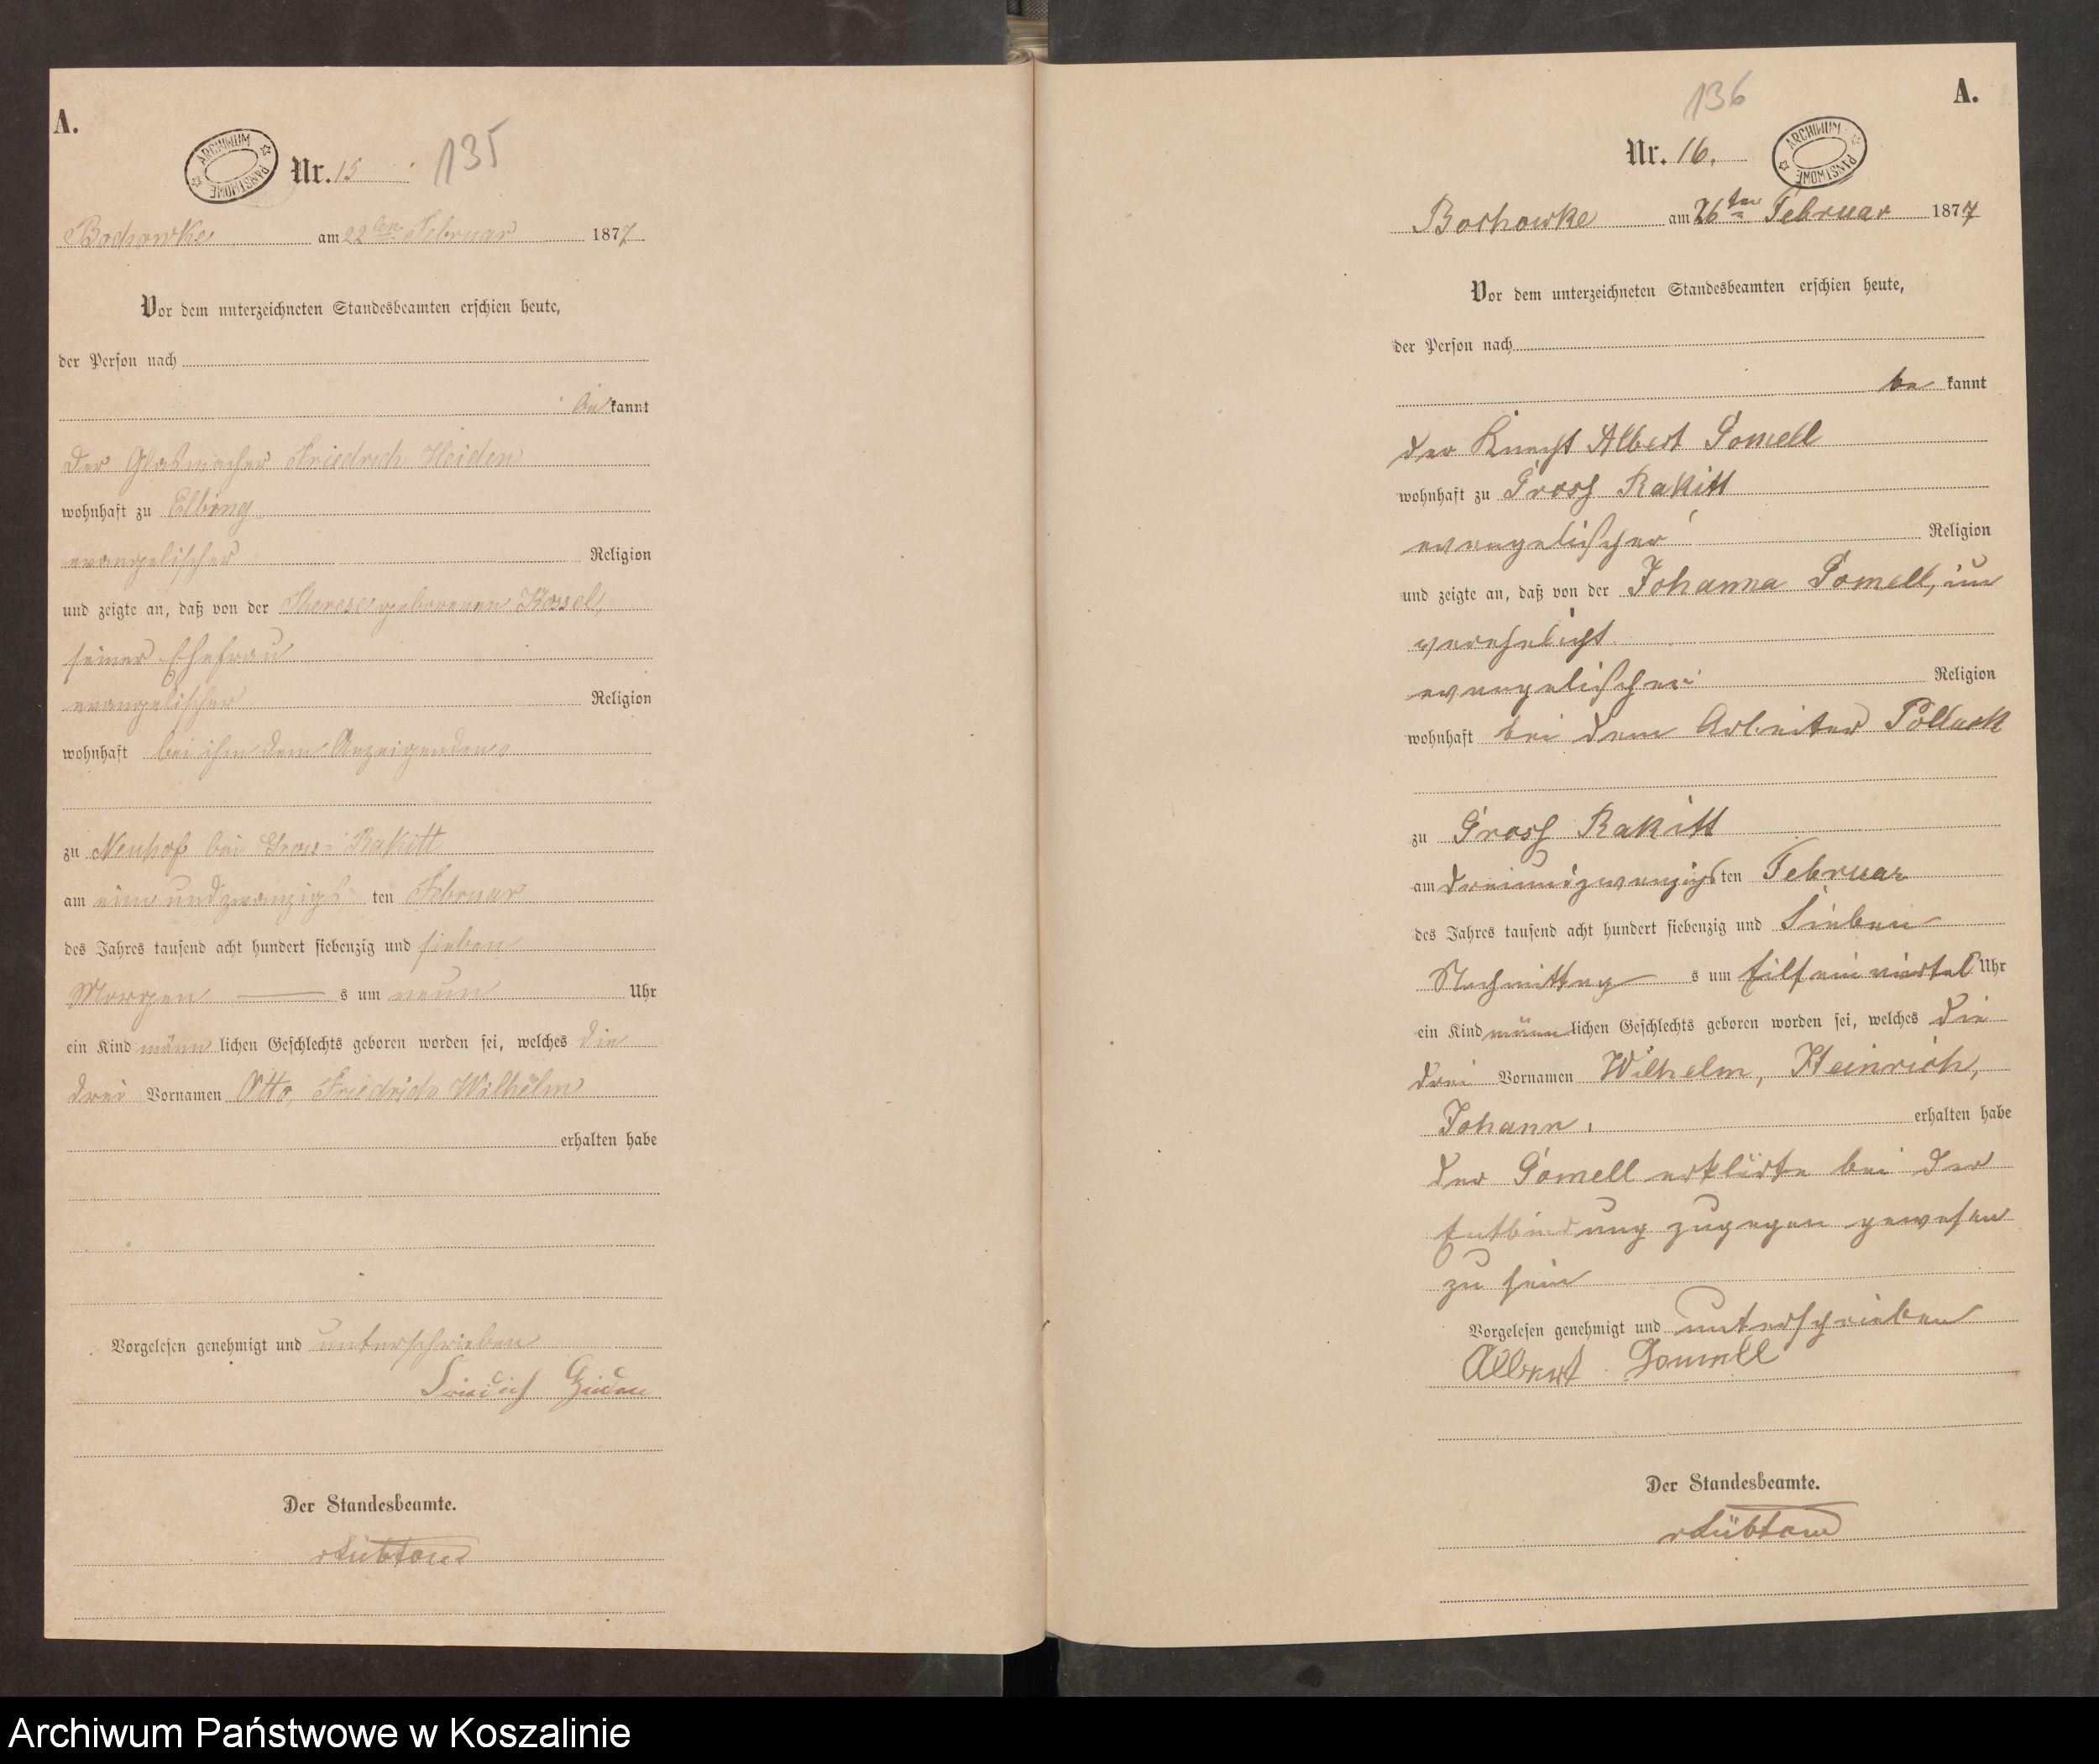 A.
ARCHIWUM PAŃSTWOWE
Nr. 15
135
Bochowke am 22ten Februar 1877
Vor dem unterzeichneten Standesbeamten erschien heute,
der Person nach
be kannt
der Glasmacher Friedrich Heiden
wohnhaft zu Elbing
evangelischer Religion
und zeigte an, daß von der Therese geborenen Kossel,
seiner Ehefrau
evangelischer Religion
wohnhaft bei ihm dem Anzeigenden
zu Neuhof bei Gross Rakitt
am einundzwanzigs ten Februar
des Jahres tausend acht hundert siebenzig und sieben
Morgen s um neun Uhr
ein Kind männ lichen Geschlechts geboren worden sei, welches die
drei Vornamen Otto, Friedrich Wilhelm
erhalten habe
Vorgelesen genehmigt und unterschrieben
Friedrich Heiden
Der Standesbeamte.
A.
136
Nr. 16.
ARCHIWUM PAŃSTWOWE
Bochowke am 26ten Februar 1877
Vor dem unterzeichneten Standesbeamten erschien heute,
der Person nach
be kannt
der Knecht Albert Gomell
wohnhaft zu Gross Rakitt
evangelischer Religion
und zeigte an, daß von der Johanna Gomell, un
verehelicht
evangelischer Religion
wohnhaft bei dem Arbeiter Pollack
zu Gross Rakitt
am dreiundzwanzigs ten Februar
des Jahres tausend acht hundert siebenzig und sieben
Nachmittag s um Eilf ein viertel Uhr
ein Kind männ lichen Geschlechts geboren worden sei, welches die
drei Vornamen Wilhelm, Heinrich,
Johann. erhalten habe
der Gomell erklärte bei der
Entbindung zugegen gewesen
zu sein
Vorgelesen genehmigt und unterschrieben
Albert Gomell
Der Standesbeamte.
Archiwum Państwowe w Koszalinie